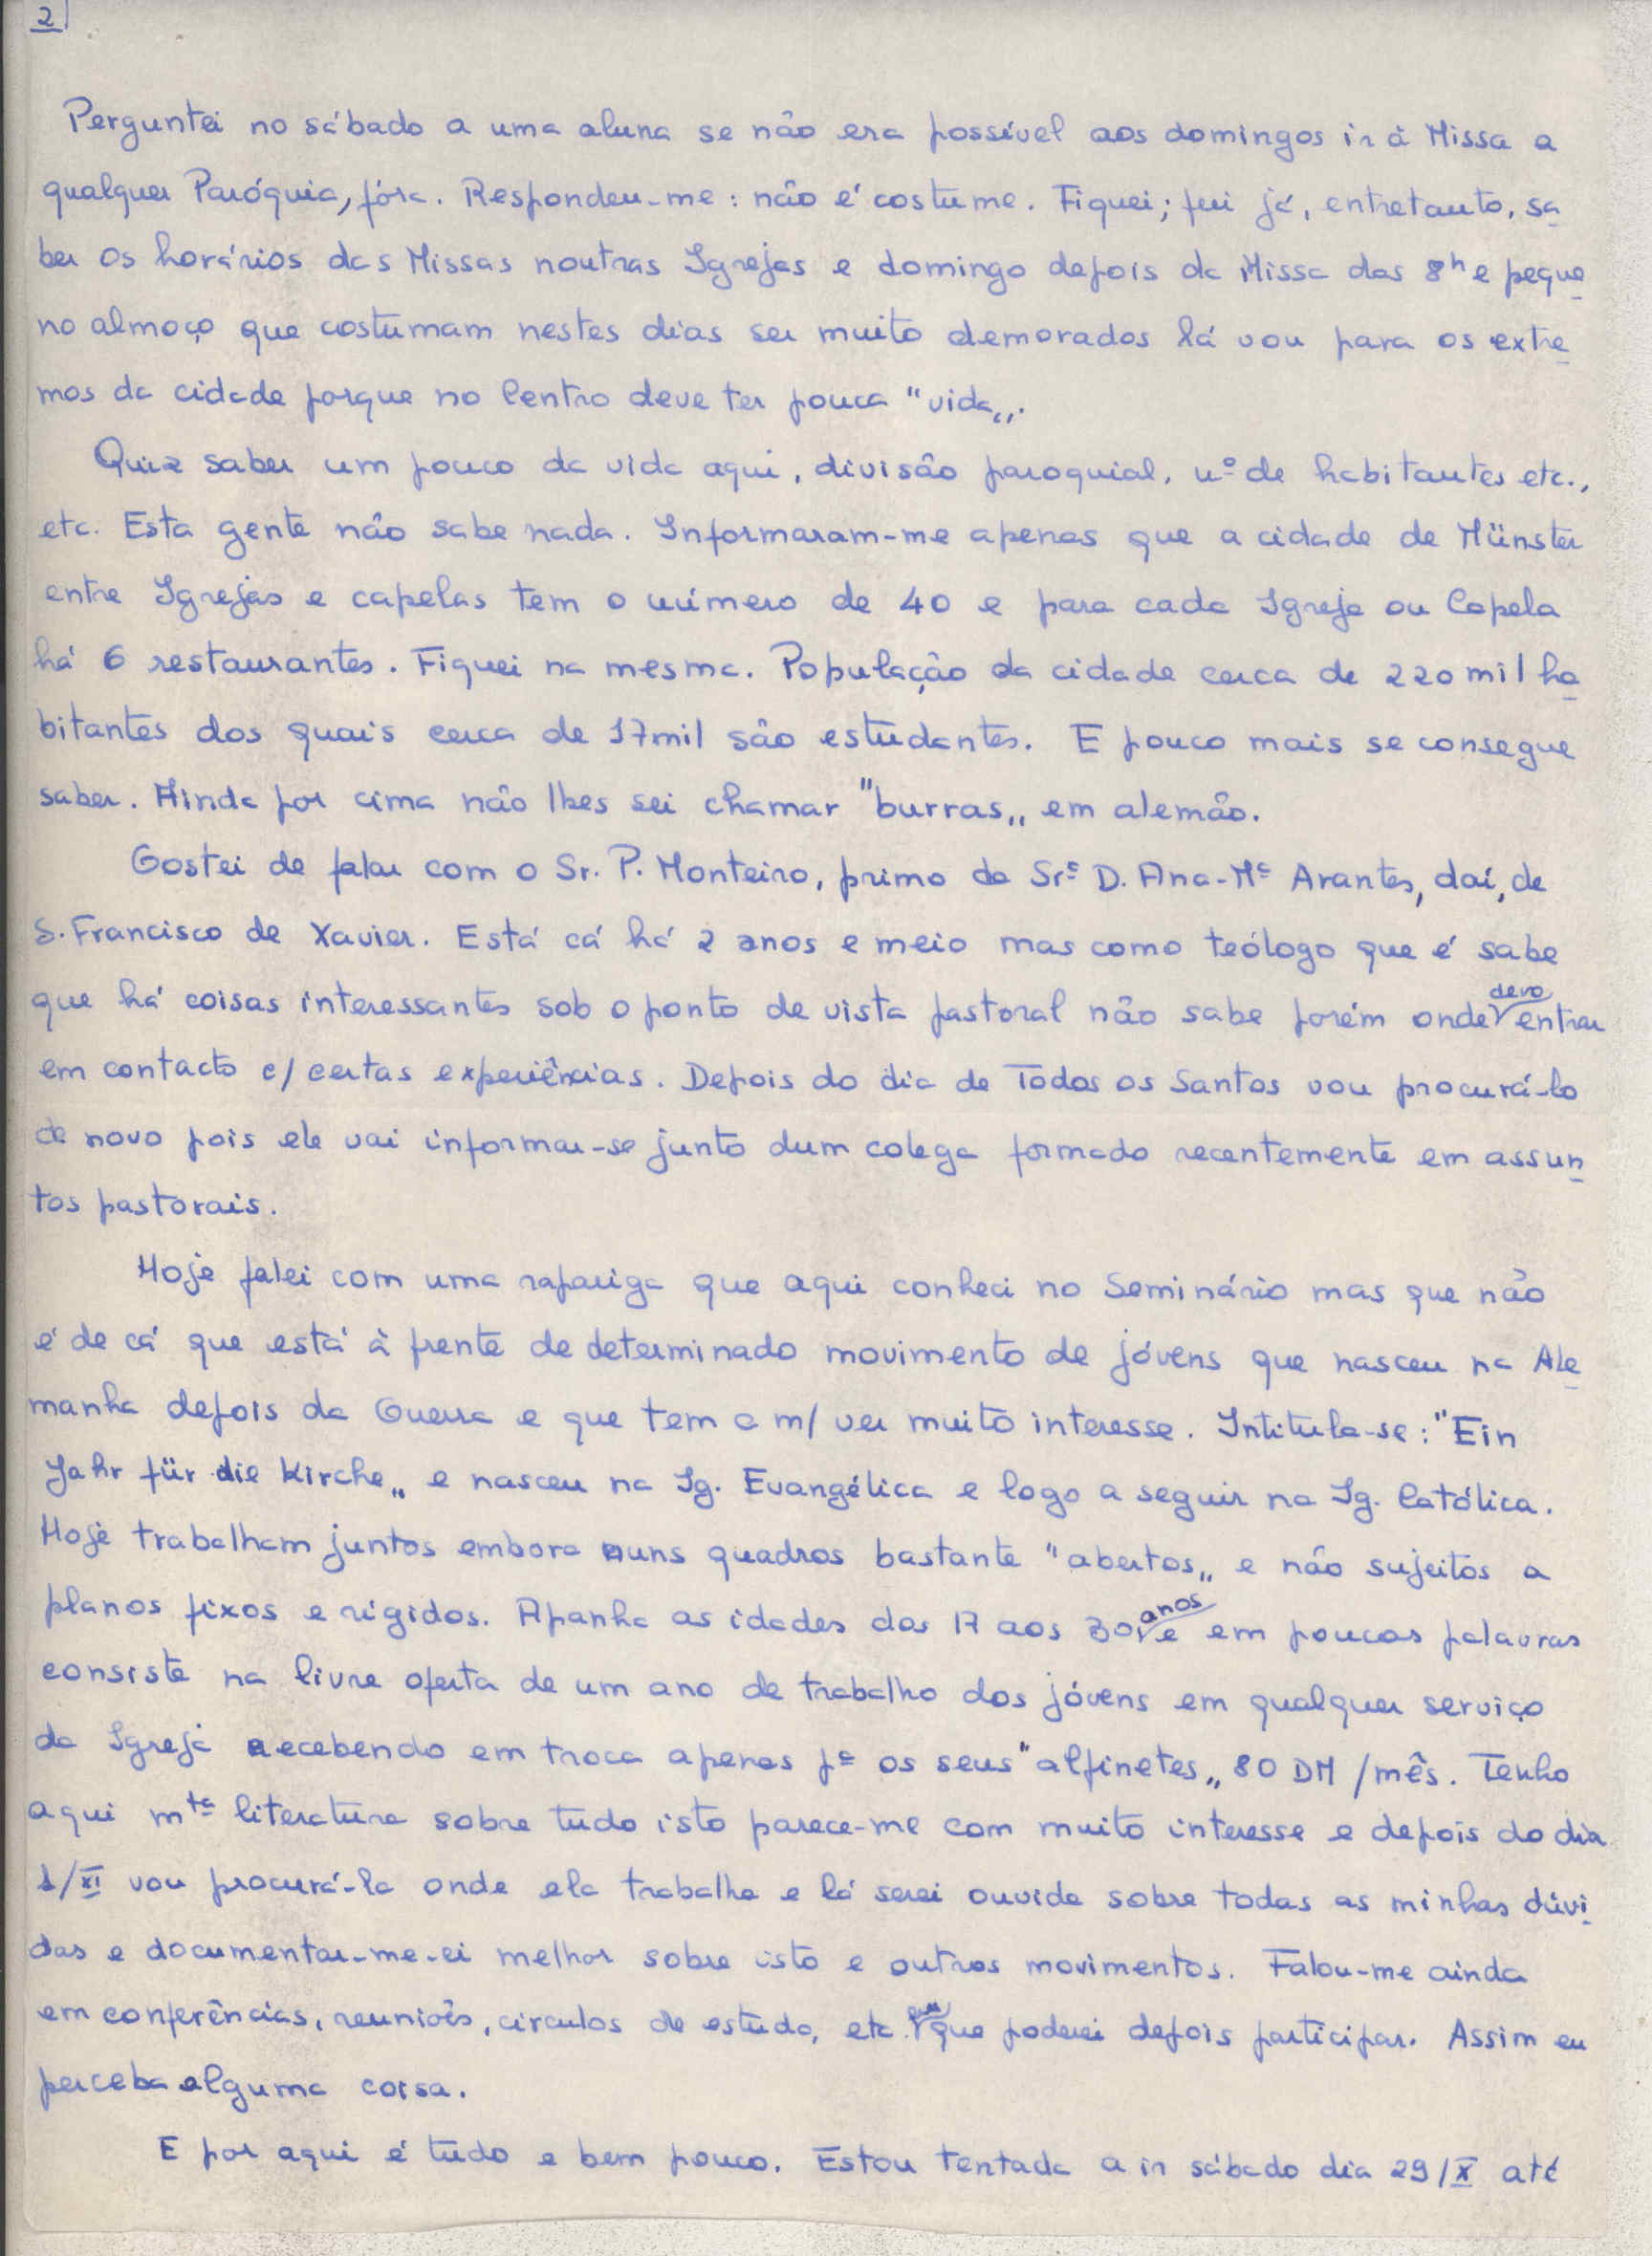 2
Perguntei no sábado a uma aluna se não era possível aos domingos ir à Missa a
qualquer Paróquia, fóra. Respondeu-me: não é costume. Fiquei; fui já, entretanto, sa
ber os horários das Missas noutras Igrejas e domingo depois da Missa das 8h e peque
no almoço que costumam nestes dias ser muito demorados lá vou para os extre
mos da cidade porque no Centro deve ter pouca "vida„.
Quiz saber um pouco da vida aqui, divisão paroquial, nº de habitantes etc.,
etc. Esta gente não sabe nada. Informaram-me apenas que a cidade de Münster
entre Igrejas e capelas tem o número de 40 e para cada Igreja ou Capela
há 6 restaurantes. Fiquei na mesma. População da cidade cerca de 220 mil ha
bitantes dos quais cerca de 17 mil são estudantes. E pouco mais se consegue
saber. Ainda por cima não lhes sei chamar "burras„ em alemão.
Gostei de falar com o Sr. P. Monteiro, primo da Srª D. Ana-Mª Arantes, daí, de
S. Francisco de Xavier. Está cá há 2 anos e meio mas como teólogo que é sabe
que há coisas interessantes sob o ponto de vista pastoral não sabe porém onde devo entrar
em contacto c/ certas experiências. Depois do dia de Todos os Santos vou procurá-lo
de novo pois ele vai informar-se junto dum colega formado recentemente em assun
tos pastorais.
Hoje falei com uma rapariga que aqui conheci no Seminário mas que não
é de cá que está à frente de determinado movimento de jóvens que nasceu na Ale
manha depois da Guerra e que tem a m/ ver muito interesse. Intitula-se: "Ein
Jahr für die Kirche„ e nasceu na Ig. Evangélica e logo a seguir na Ig. Católica.
Hoje trabalham juntos embora nuns quadros bastante "abertos„ e não sujeitos a
planos fixos e rígidos. Apanha as idades dos 17 aos 30 anos e em poucas palavras
consiste na livre oferta de um ano de trabalho dos jóvens em qualquer serviço
da Igreja recebendo em troca apenas pª os seus "alfinetes„ 80 DM /mês. Tenho
aqui mtª literatura sobre tudo isto parece-me com muito interesse e depois do dia
1/XI vou procurá-la onde ela trabalha e lá serei ouvida sobre todas as minhas dúvi
das e documentar-me-ei melhor sobre isto e outros movimentos. Falou-me ainda
em conferências, reuniões, circulos de estudo, etc. em que poderei depois participar. Assim eu
perceba alguma coisa.
E por aqui é tudo e bem pouco. Estou tentada a ir sábado dia 29/X até